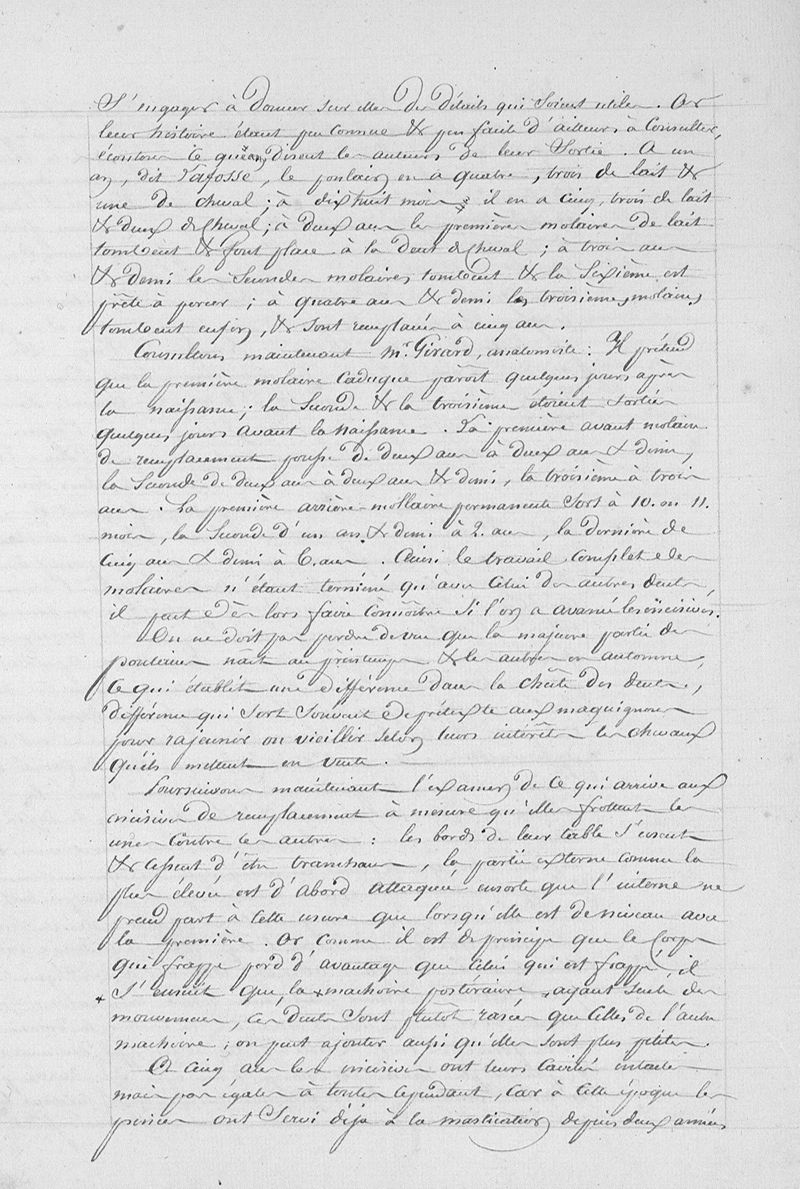 S'engager à donner sur elles des détails qui soient utiles. Or
leur histoire étant peu connue & peu facile d'ailleurs à consulter,
écoutons ce qu'en disent les auteurs de leur sortie. A un
an, dit Lafosse, le poulain en a quatre, trois de lait &
une de cheval ; à dix huit mois il en a cinq, trois de lait
& deux de cheval ; à deux ans les premières molaires de lait
tombent & font place à la dent de cheval ; à trois ans
& demi les secondes molaires tombent & la sixième est
prête à percer ; à quatre ans & demi les troisièmes molaires
tombent enfin, & sont remplacées à cinq ans.
Consultons maintenant Mr. Girard, anatomiste : Il prétend
que la première molaire caduque paroît quelques jours après
la naissance ; la seconde & la troisième étoient sorties
quelques jours avant la naissance. La première avant molaire
de remplacement pousse de deux ans à deux ans & demi,
la seconde de deux ans à deux ans & demi, la troisième à trois
ans. La première arrière-mollaire permanente sort à 10. ou 11.
mois, la seconde d'un an & demi à 2. ans, la dernière de
cinq ans & demi à 6. ans. Ainsi le travail complet des
molaires n'étant terminé qu'avec celui des autres dents,
il peut dès lors faire connoître si l'on a avancé les incisives.
On ne doit pas perdre de vue que la majeure partie des
poulains nait au printemps & les autres en automne,
ce qui établit une différence dans la chûte des dents,
différence qui sert souvent de prétexte aux maquignons
pour rajeunir ou vieillir selon leurs intérêts les chevaux
qu'ils mettent en vente.
Poursuivons maintenant l'examen de ce qui arrive aux
incisives de remplacement à mesure qu'elles frottent les
unes contre les autres : les bords de leur table s'usent
& cessent d'être tranchans, la partie externe comme la
plus élevée est d'abord attaquée ensorte que l'interne ne
prend part à cette usure que lorsqu'elle est de niveau avec
la première. Or comme il est de principe que le corps
qui frappe perd d'avantage que celui qui est frappé, il
s'ensuit que la machoire postérieure, ayant seule des
mouvemens, ces dents sont plutôt rasées que celles de l'autre
machoire ; on peut ajouter aussi qu'elles sont plus petites.
A cinq ans les incisives ont leurs cavités intactes
mais pas égales à toutes cependant, car à cette époque les
pinces ont servi déjà à la mastication depuis deux années